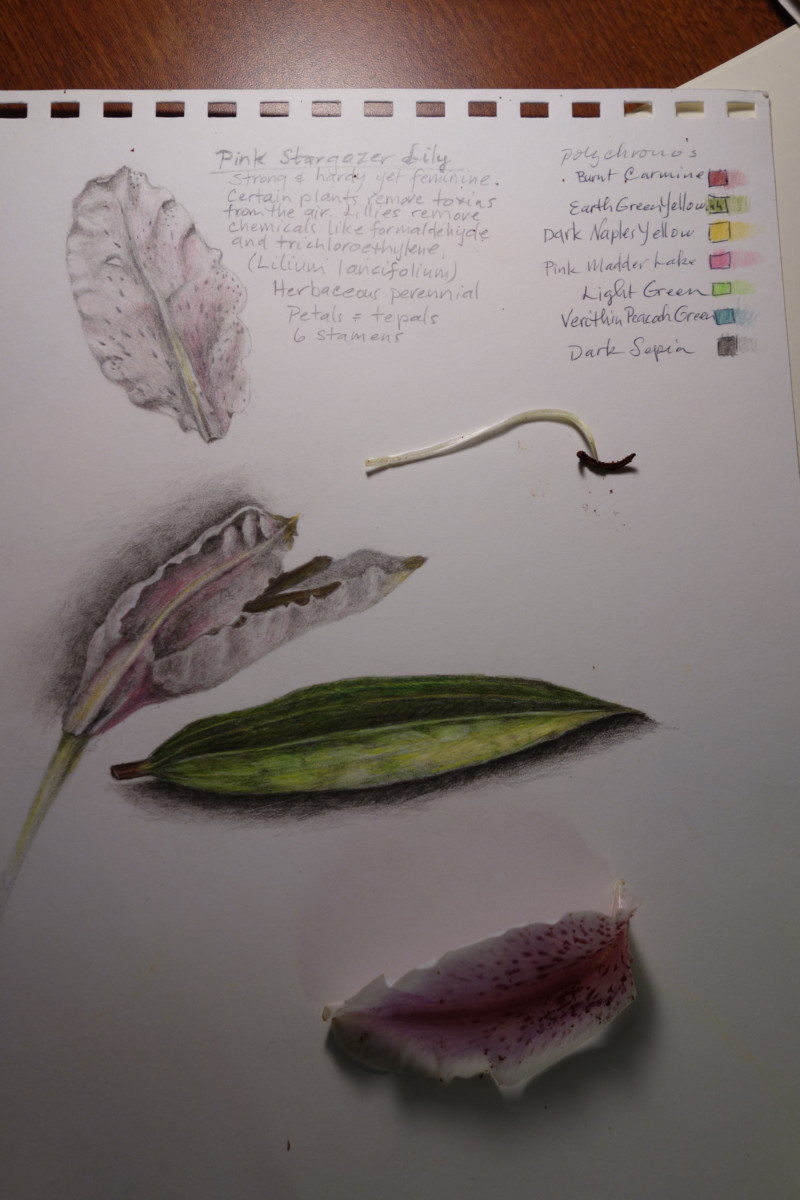 Pink Stargazer Lily
Strong & hardy yet feminine.
Certain plants remove toxins
from the air. Lillies remove
chemicals like formaldehyde
and trichloroethylene.
(Lilium lancifolium)
Herbaceous perennial
Petals = tepals
6 stamens
polychromo's
Burnt Carmine
Earth Green Yellow
Dark Naples Yellow
Pink Madder Lake
Light Green
Verithin Peacock Green
Dark Sepia